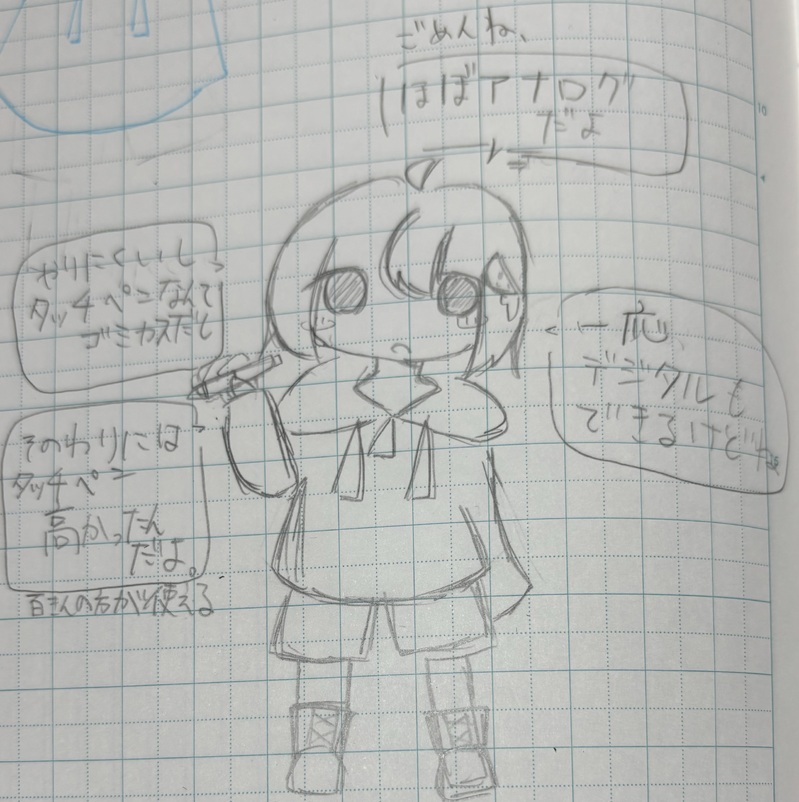 ごめんね、
ほぼアナログ
だよ
やりにくいし
タッチペンなんて
ゴミカスだし
一応、
デジタルも
できるけどね
そのわりには
タッチペン
高かったん
だよ。
百きんの方が使える
10